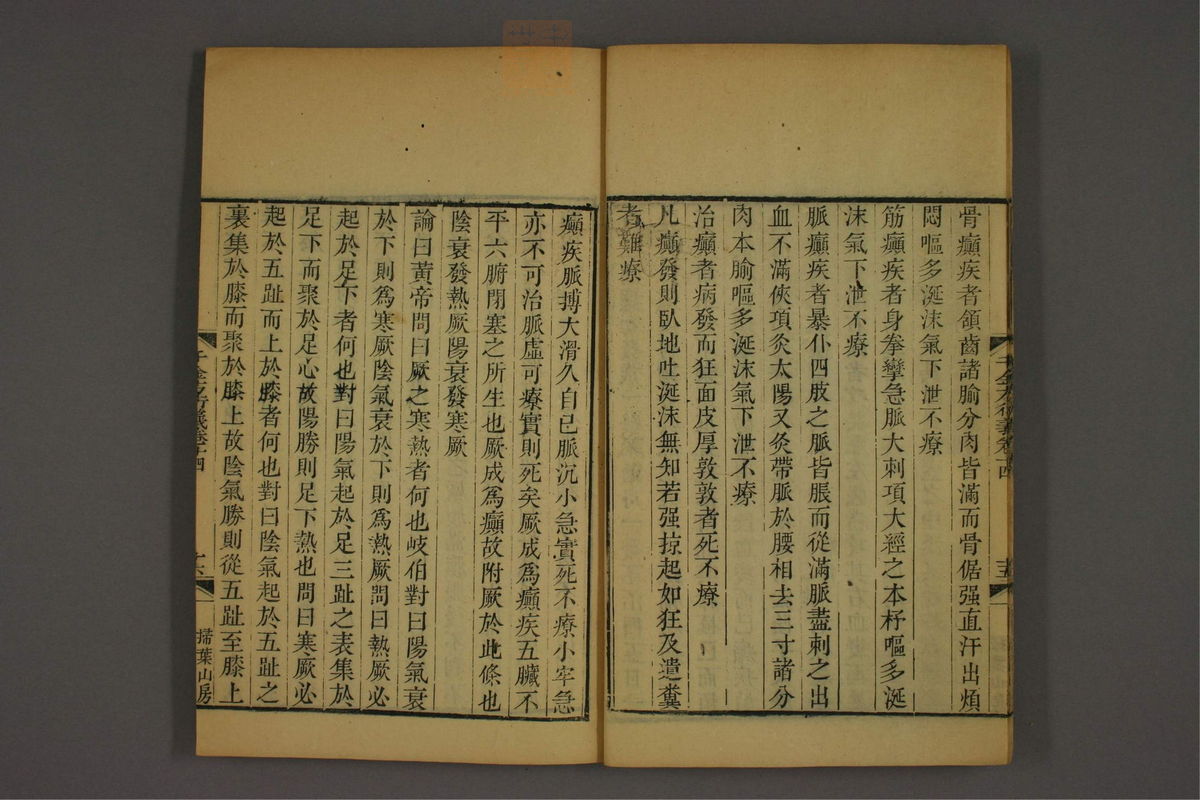 骨癲疾者頷齒諸腧分肉皆滿而骨倨强直汗出煩
悶嘔多涎沫氣下泄不療
筋癲疾者身拳攣急脈大刺項大經之本杼嘔多涎
沫氣下泄不療
脈癲疾者暴仆四肢之脈皆脹而從滿脈盡刺之出
血不滿俠項灸太陽又灸帶脈於腰相去三寸諸分
肉本腧嘔多涎沫氣下泄不療
治癲者病發而狂面皮厚敦敦者死不療
凡癲發則臥地吐涎沫無知若强掠起如狂及遺糞
者難療
千金方衍義卷十四
十五
癲疾脈搏大滑久自已脈沉小急實死不療小牢急
亦不可治脈虛可療實則死矣厥成爲癲疾五臟不
平六腑閉塞之所生也厥成爲癲故附厥於此條也
陰衰發熱厥陽衰發寒厥
論曰黃帝問曰厥之寒熱者何也岐伯對曰陽氣衰
於下則爲寒厥陰氣衰於下則爲熱厥問曰熱厥必
起於足下者何也對曰陽氣起於足三趾之表集於
足下而聚於足心故陽勝則足下熱也問曰寒厥必
起於五趾而上於膝者何也對曰陰氣起於五趾之
裏集於膝而聚於膝上故陰氣勝則從五趾至膝上
千金方衍義卷十四
十六
掃葉山房